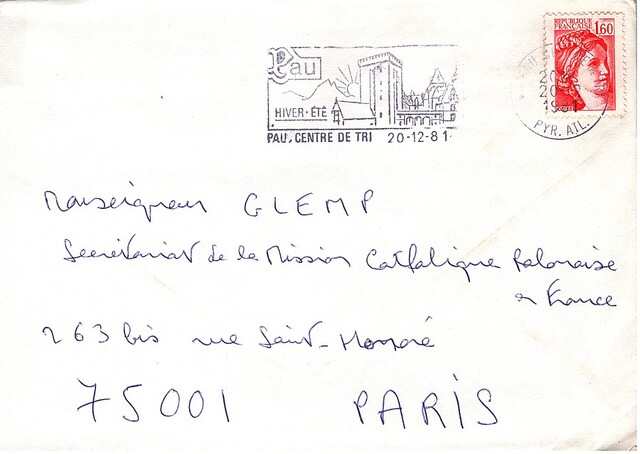 Pau
HIVER-ÉTÉ
PAU. CENTRE DE TRI 20-12-81
REPUBLIQUE
FRANÇAISE
1.60
20
1981
PYR. ATL.
Monseigneur GLEMP
Secrétariat de la Mission Catholique Polonaise
en France
263 bis rue Saint-Honoré
75001 PARIS